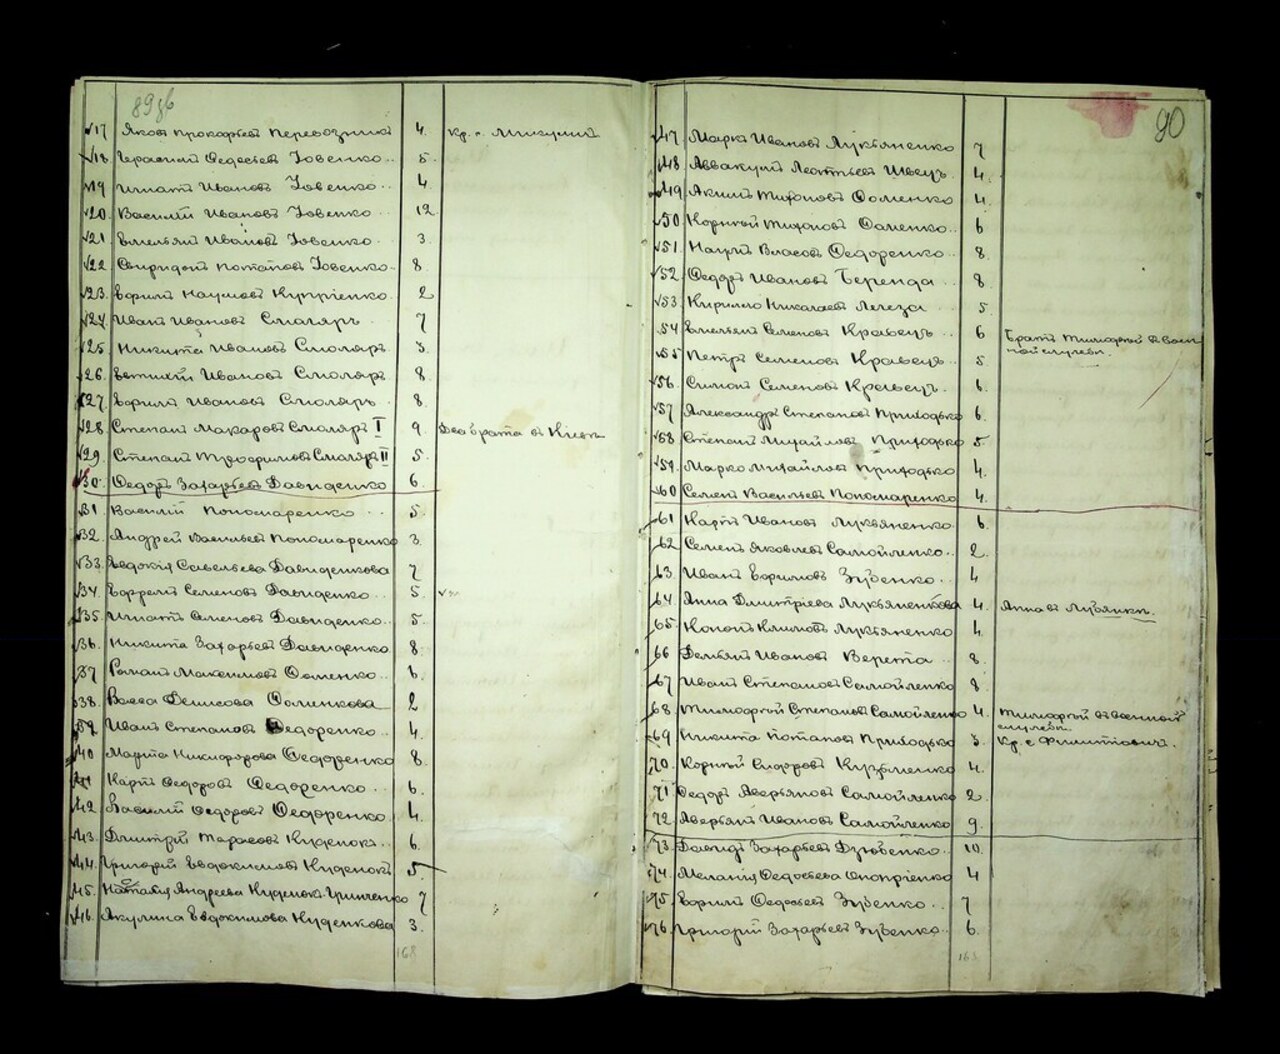 89 зв
17 Яковъ Прокофьевъ Перевозникъ 4. Кр. с. Микуличи
18. Герасимъ Федосьевъ Ювенко 5.
19 Игнатъ Ивановъ Ювенко 4.
20. Василій Ивановъ Ювенко 12
21. Емельянъ Ивановъ Ювенко 3.
22. Свиридонъ Потаповъ Ювенко 8.
23. Ефимъ Наумовъ Купріенко 2
24. Иванъ Ивановъ Смоляръ 7
25. Никита Ивановъ Смоляръ 3.
26. Евтихій Ивановъ Смоляръ 8.
27. Ефимъ Ивановъ Смоляръ 8.
28. Степанъ Макаровъ Смоляръ I 9. Два брата въ Кіевѣ
29. Степанъ Трофимовъ Смоляръ II 5.
30. Федоръ Захарьевъ Давиденко 6.
31. Василій Пономаренко 5.
32. Андрей Васильевъ Пономаренко 3.
33. Явдокія Савельева Давиденкова 7
34. Ефремъ Семеновъ Давиденко 5.
35. Игнатъ Семеновъ Давиденко 5.
36. Никита Захарьевъ Давиденко 8.
37 Романъ Максимовъ Фоменко 6.
38. Васса Денисова Фоменкова 2
39. Иванъ Степановъ Федоренко 4.
40 Марта Никифорова Федоренко 8.
41 Карпъ Федоровъ Федоренко 6.
42 Василій Федоровъ Федоренко 4.
43. Дмитрій Тарасовъ Куценокъ 6.
44. Григорій Евдокимовъ Куценокъ 5.
45. Наталія Андреева Куценокъ-Гринченко 7
46. Акулина Евдокимова Куценкова 3.
168
90
47 Марко Ивановъ Лукьяненко 7
48 Аввакумъ Леонтьевъ Швецъ 4.
49 Акимъ Тихоновъ Фоменко 4.
50 Корній Тихоновъ Фоменко 6
51. Наумъ Власовъ Федоренко 8.
52. Федоръ Ивановъ Беренда 8.
53 Кирилло Николаевъ Легеза 5
54 Емельянъ Семеновъ Кравецъ 6 Братъ Тимофей въ воен
ной службѣ.
55 Петръ Семеновъ Кравецъ 5.
56. Симонъ Семеновъ Кравецъ 6.
57 Александръ Степановъ Приходько 6.
58 Степанъ Михайловъ Приходько 5.
59. Марко Михайловъ Приходько 4.
60 Семенъ Васильевъ Пономаренко 4.
61 Карпъ Ивановъ Лукьяненко 6.
62 Семенъ Яковлевъ Самойленко 2.
63. Иванъ Ефимовъ Зубенко 4
64. Анна Дмитріева Лукьяненкова 4. Анна въ Лубянкѣ.
65. Кононъ Климовъ Лукьяненко 4.
66 Демьянъ Ивановъ Верета 8.
67 Иванъ Степановъ Самойленко 8.
68 Тимофѣй Степановъ Самойленко 4. Тимофѣй въ военной
службѣ.
69 Никита Потаповъ Приходько 3. Кр. с Филиповичъ.
70. Корній Сидоровъ Кузьменко 4.
71 Федоръ Аверьяновъ Самойленко 2.
72. Аверьянъ Ивановъ Самойленко 9.
73. Давидъ Захарьевъ Дзюбенко 10.
74. Меланія Федосьева Оноприенко 4
75. Ефимъ Федосьевъ Зубенко 7
76. Григорій Захарьевъ Зубенко 6.
163